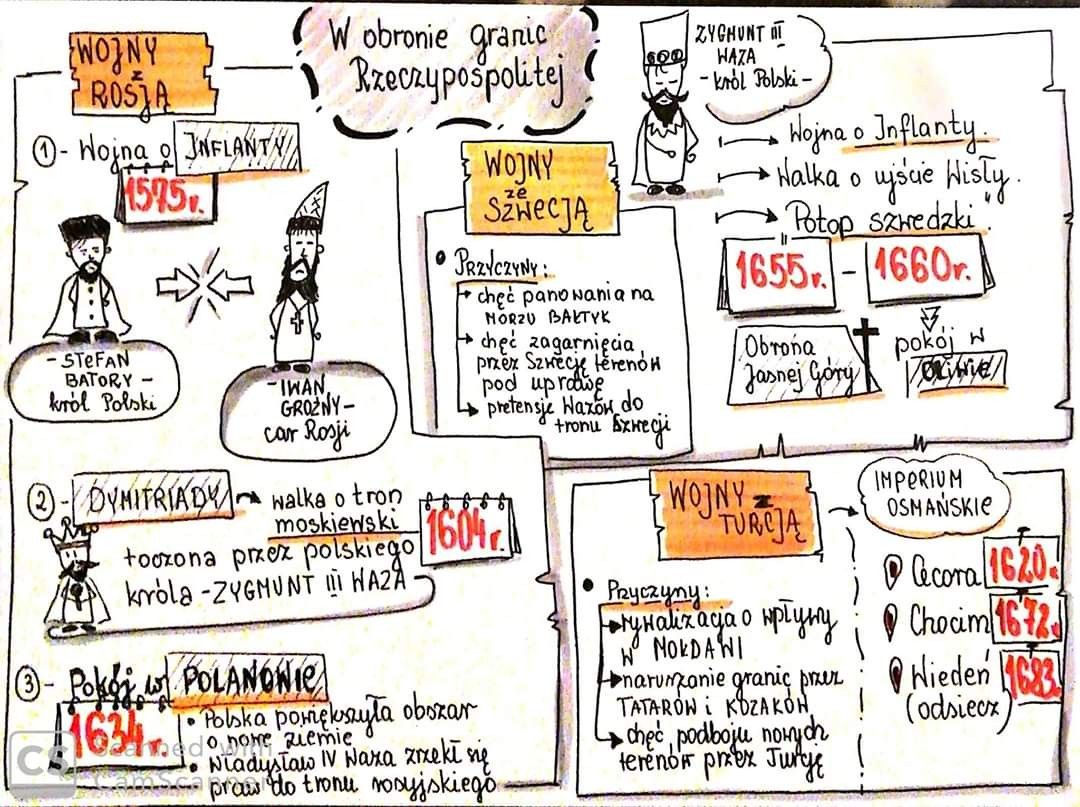 W obronie granic
Rzeczypospolitej
WOJNY
z
ROSJĄ
1 - Wojna o INFLANTY
1575r.
- STEFAN
BATORY -
król Polski
- IWAN
GROŹNY -
car Rosji
2 - DYMITRIADY
walka o tron
moskiewski
toczona przez polskiego
króla - ZYGMUNT III WAZA
1604r.
3 - Pokój w POLANOWIE
1634r.
• Polska powiększyła obszar
o nowe ziemie
• Władysław IV Waza zrzekł się
praw do tronu rosyjskiego
WOJNY
ze
SZWECJĄ
• PRZYCZYNY:
chęć panowania na
MORZU BAŁTYK
chęć zagarnięcia
przez Szwecję terenów
pod uprawę
pretensje Wazów do
tronu Szwecji
ZYGMUNT III
WAZA
- król Polski -
Wojna o Inflanty.
Walka o ujście Wisły.
"Potop szwedzki"
1655r. - 1660r.
Obrona
Jasnej Góry
pokój w
OLIWIE
WOJNY z
TURCJĄ
IMPERIUM
OSMAŃSKIE
• Przyczyny:
rywalizacja o wpływy
w MOŁDAWI
naruszanie granic przez
TATARÓW i KOZAKÓW
chęć podboju nowych
terenów przez Turcję
Cecora 1620r.
Chocim 1672r.
Wiedeń 1683.
(odsiecz)
CS Scanned with
CamScanner